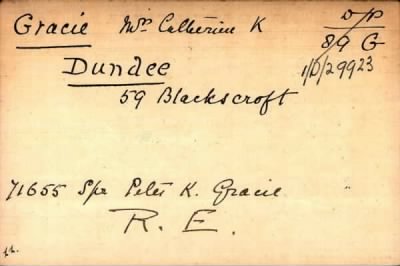 Gracie Mrs Catherine K
D/P
89 G
1/D/29923
Dundee
59 Blackscroft
71655 Spr Peter K. Gracie
R. E.